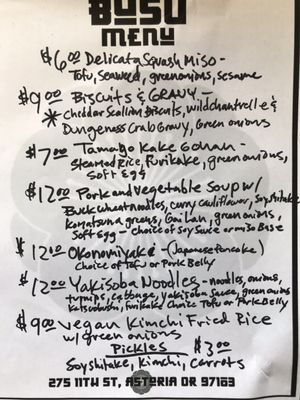 BUSU
MENU
$6.00 Delicata Squash Miso -
Tofu, seaweed, green onions, sesame
$9.00 Biscuits & GRAVY -
* Cheddar Scallion Biscuits, wild chantrelle &
Dungeness Crab Gravy, Green onions
$7.00 Tamago Kake Gohan -
Steamed Rice, Furikake, green onions,
Soft Egg
$12.00 Pork and Vegetable Soup w/
Buckwheat noodles, curry cauliflower, Soy shitake
Komatsuna greens, Gai Lan, green onions,
Soft egg - Choice of Soy Sauce or miso Base
$12.00 Okonomiyaki - (Japanese Pancake)
Choice of Tofu or Pork Belly
$12.00 Yakisoba Noodles - noodles, onions,
turnips, cabbage, yakisoba sauce, green onions
Katsuobushi, furikake Choice Tofu or Pork Belly
$9.00 Vegan Kimchi Fried Rice
w/ green onions
Pickles $3.00
Soy shitake, Kimchi, Carrots
275 11TH ST, ASTORIA OR 97103